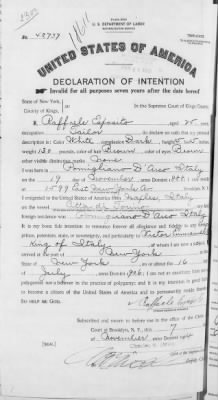 U. S. DEPARTMENT OF LABOR
NATURALIZATION SERVICE
No. 43757
UNITED STATES OF AMERICA
DECLARATION OF INTENTION
Invalid for all purposes seven years after the date hereof
State of New York,
County of Kings,
In the Supreme Court of Kings County.
I, Raffaele Esposito, aged years,
occupation Tailor, do declare on oath that my personal
description is: Color White, complexion Dark, height
weight 138 pounds, color of hair Brown, color of eyes Brown
other visible distinctive marks None
I was born in Pomigliano D'Arco Italy
on the 19 day of November, anno Domini; I now reside
at 1599 East New York Av, Brooklyn, N.Y.
I emigrated to the United States of America from Naples, Italy
on the vessel; my last
foreign residence was Pomigliano D'Arco Italy
It is my bona fide intention to renounce forever all allegiance and fidelity to any foreign
prince, potentate, state, or sovereignty, and particularly to Victor Emmanuel
King of Italy, of whom I am now a subject; I
arrived at the port of New York, in the
State of New York on or about the 16 day
of July, anno Domini; I am not an anarchist; I am not a
polygamist nor a believer in the practice of polygamy; and it is my intention in good faith
to become a citizen of the United States of America and to permanently reside therein:
SO HELP ME GOD.
Raffaele Esposito
Subscribed and sworn to before me in the office of the Clerk of
Court at Brooklyn, N.Y., this 7 day
of November, anno Domini
[SEAL]